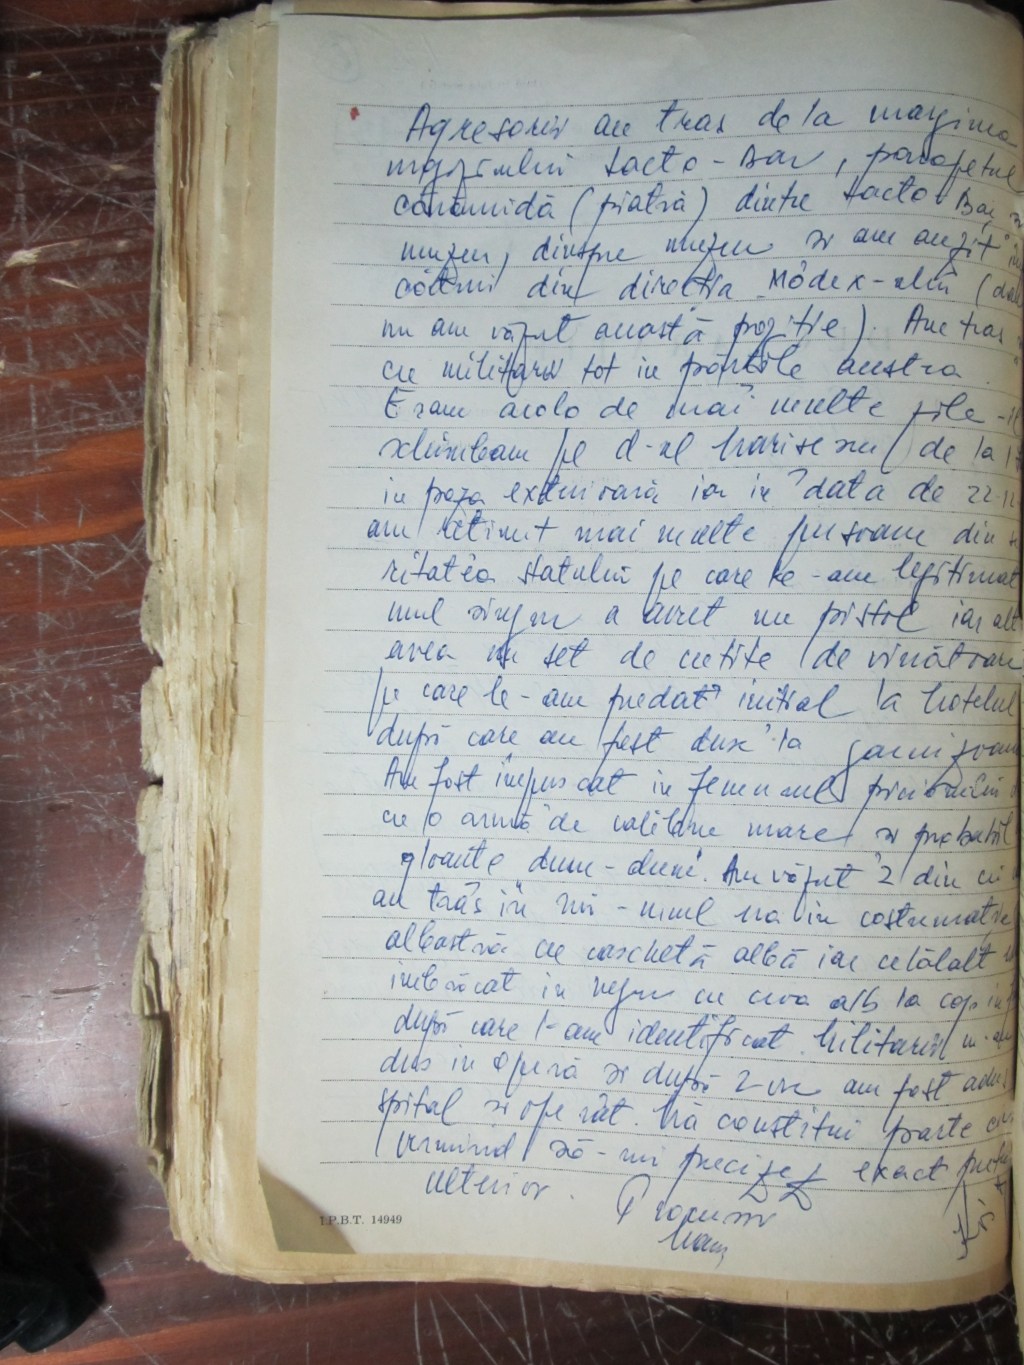 Agresorii au tras de la marginea
magazinului Lacto-Bar, parapetul
cărămidă (piatră) dintre Lacto Bar și
muzeu, dinspre muzeu și am auzit în
din direcția Modex-ului (dar
nu am văzut această poziție). Au tras
cu militarii tot în părțile
Eram acolo de mai multe zile -îl
schimbam pe d-ul de la 17
în paza exterioară iar în data de 22.12
am reținut mai multe persoane din
ritatea statului pe care le-am legitimat
unul singur a avut un pistol iar alt
avea un set de cuțite de vînătoare
pe care le-am predat inițial la hotelul
după care au fost duse la garnizoană
Am fost împușcat în femurul piciorului
cu o armă de calibru mare și probabil
gloanțe dum-dum. Am văzut 2 din cei
au tras în noi -unul era în costumație
albastră cu caschetă albă iar celălalt
îmbrăcat în negru cu ceva alb la cap
după care l-am identificat. Militarii m-au
dus în Operă și după 2 ore am fost adus
spital și operat. Mă constitui parte civ
urmînd să-mi precizez exact
ulterior.
Procuror
I.P.B.T. 14949